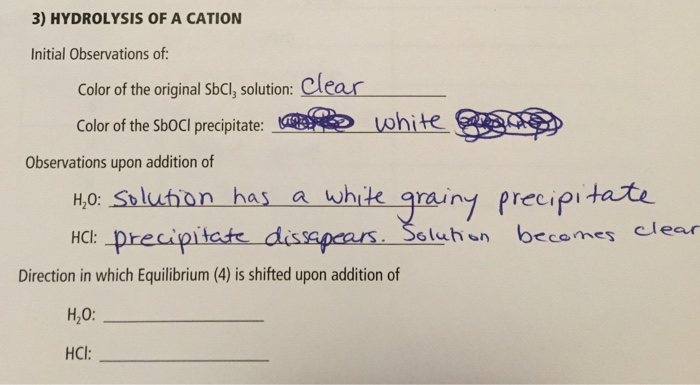 3) HYDROLYSIS OF A CATION
Initial Observations of:
Color of the original SbCl₃ solution: Clear
Color of the SbOCl precipitate: white
Observations upon addition of
H₂O: Solution has a white grainy precipitate
HCl: precipitate dissapears. Solution becomes clear
Direction in which Equilibrium (4) is shifted upon addition of
H₂O:
HCl: